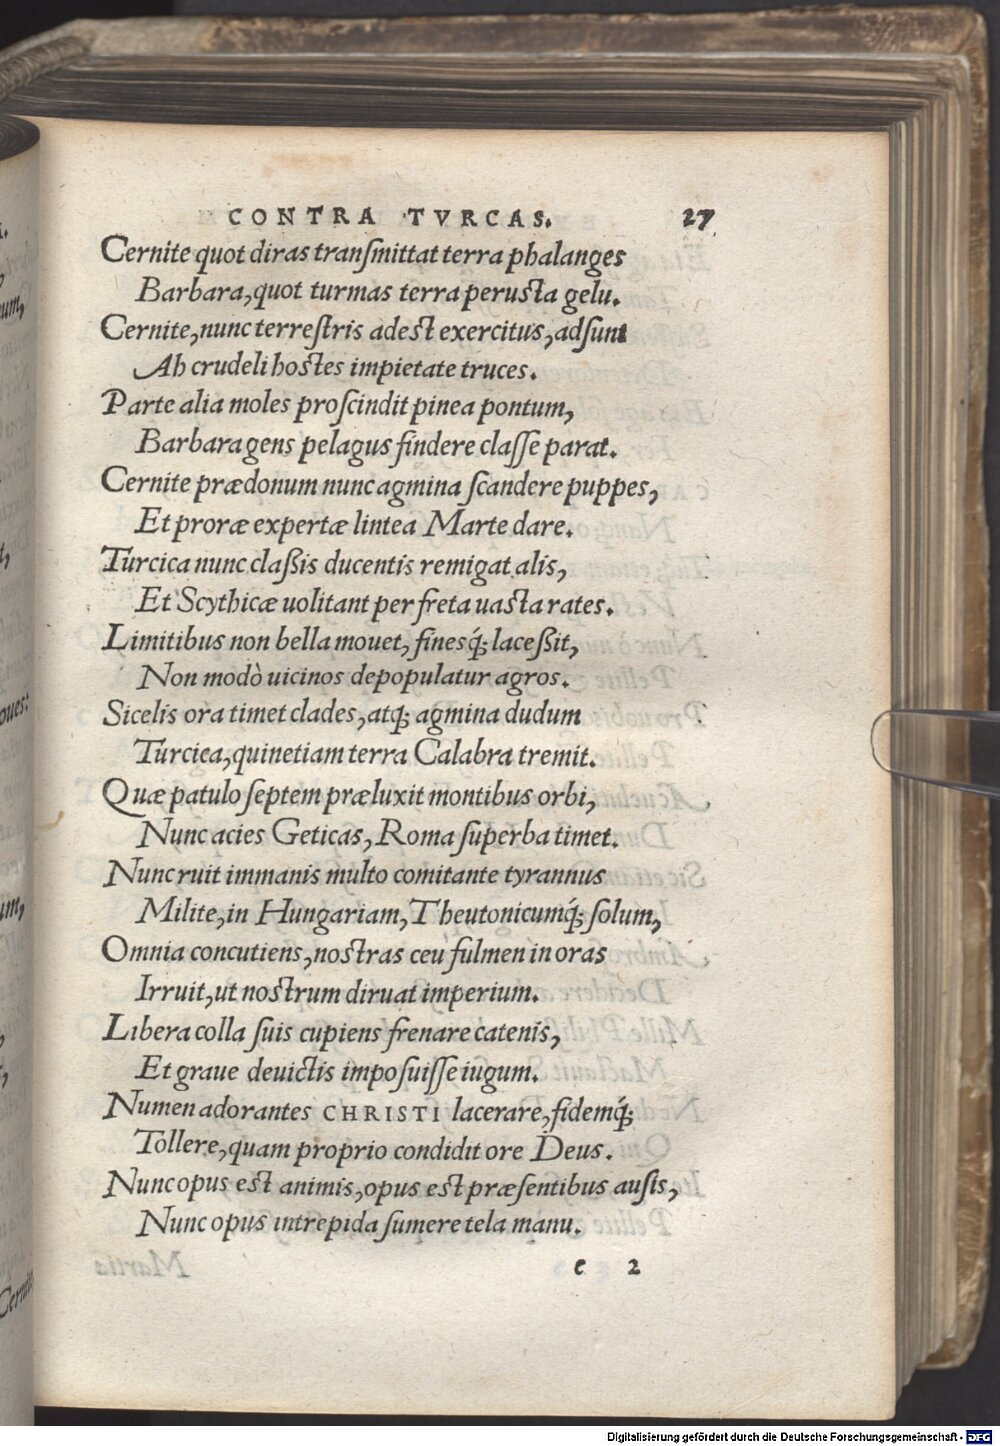 CONTRA TVRCAS. 27
Cernite quot diras transmittat terra phalanges
Barbara, quot turmas terra perusta gelu.
Cernite, nunc terrestris adest exercitus, adsunt
Ab crudeli hostes impietate truces.
Parte alia moles proscindit pinea pontum,
Barbara gens pelagus findere classe parat.
Cernite prædonum nunc agmina scandere puppes,
Et proræ expertæ lintea Marte dare.
Turcica nunc claßis ducentis remigat alis,
Et Scythicæ uolitant per freta uasta rates.
Limitibus non bella mouet, finesq́; laceßit,
Non modò uicinos depopulatur agros.
Sicelis ora timet clades, atq; agmina dudum
Turcica, quinetiam terra Calabra tremit.
Quæ patulo septem præluxit montibus orbi,
Nunc acies Geticas, Roma superba timet.
Nunc ruit immanis multo comitante tyrannus
Milite, in Hungariam, Theutonicumq́; solum,
Omnia concutiens, nostras ceu fulmen in oras
Irruit, ut nostrum diruat imperium.
Libera colla suis cupiens frenare catenis,
Et graue deuictis imposuisse iugum.
Numen adorantes CHRISTI lacerare, fidemq́;
Tollere, quam proprio condidit ore Deus.
Nunc opus est animis, opus est præsentibus ausis,
Nunc opus intrepida sumere tela manu.
e 2
Digitalisierung gefördert durch die Deutsche Forschungsgemeinschaft - DFG